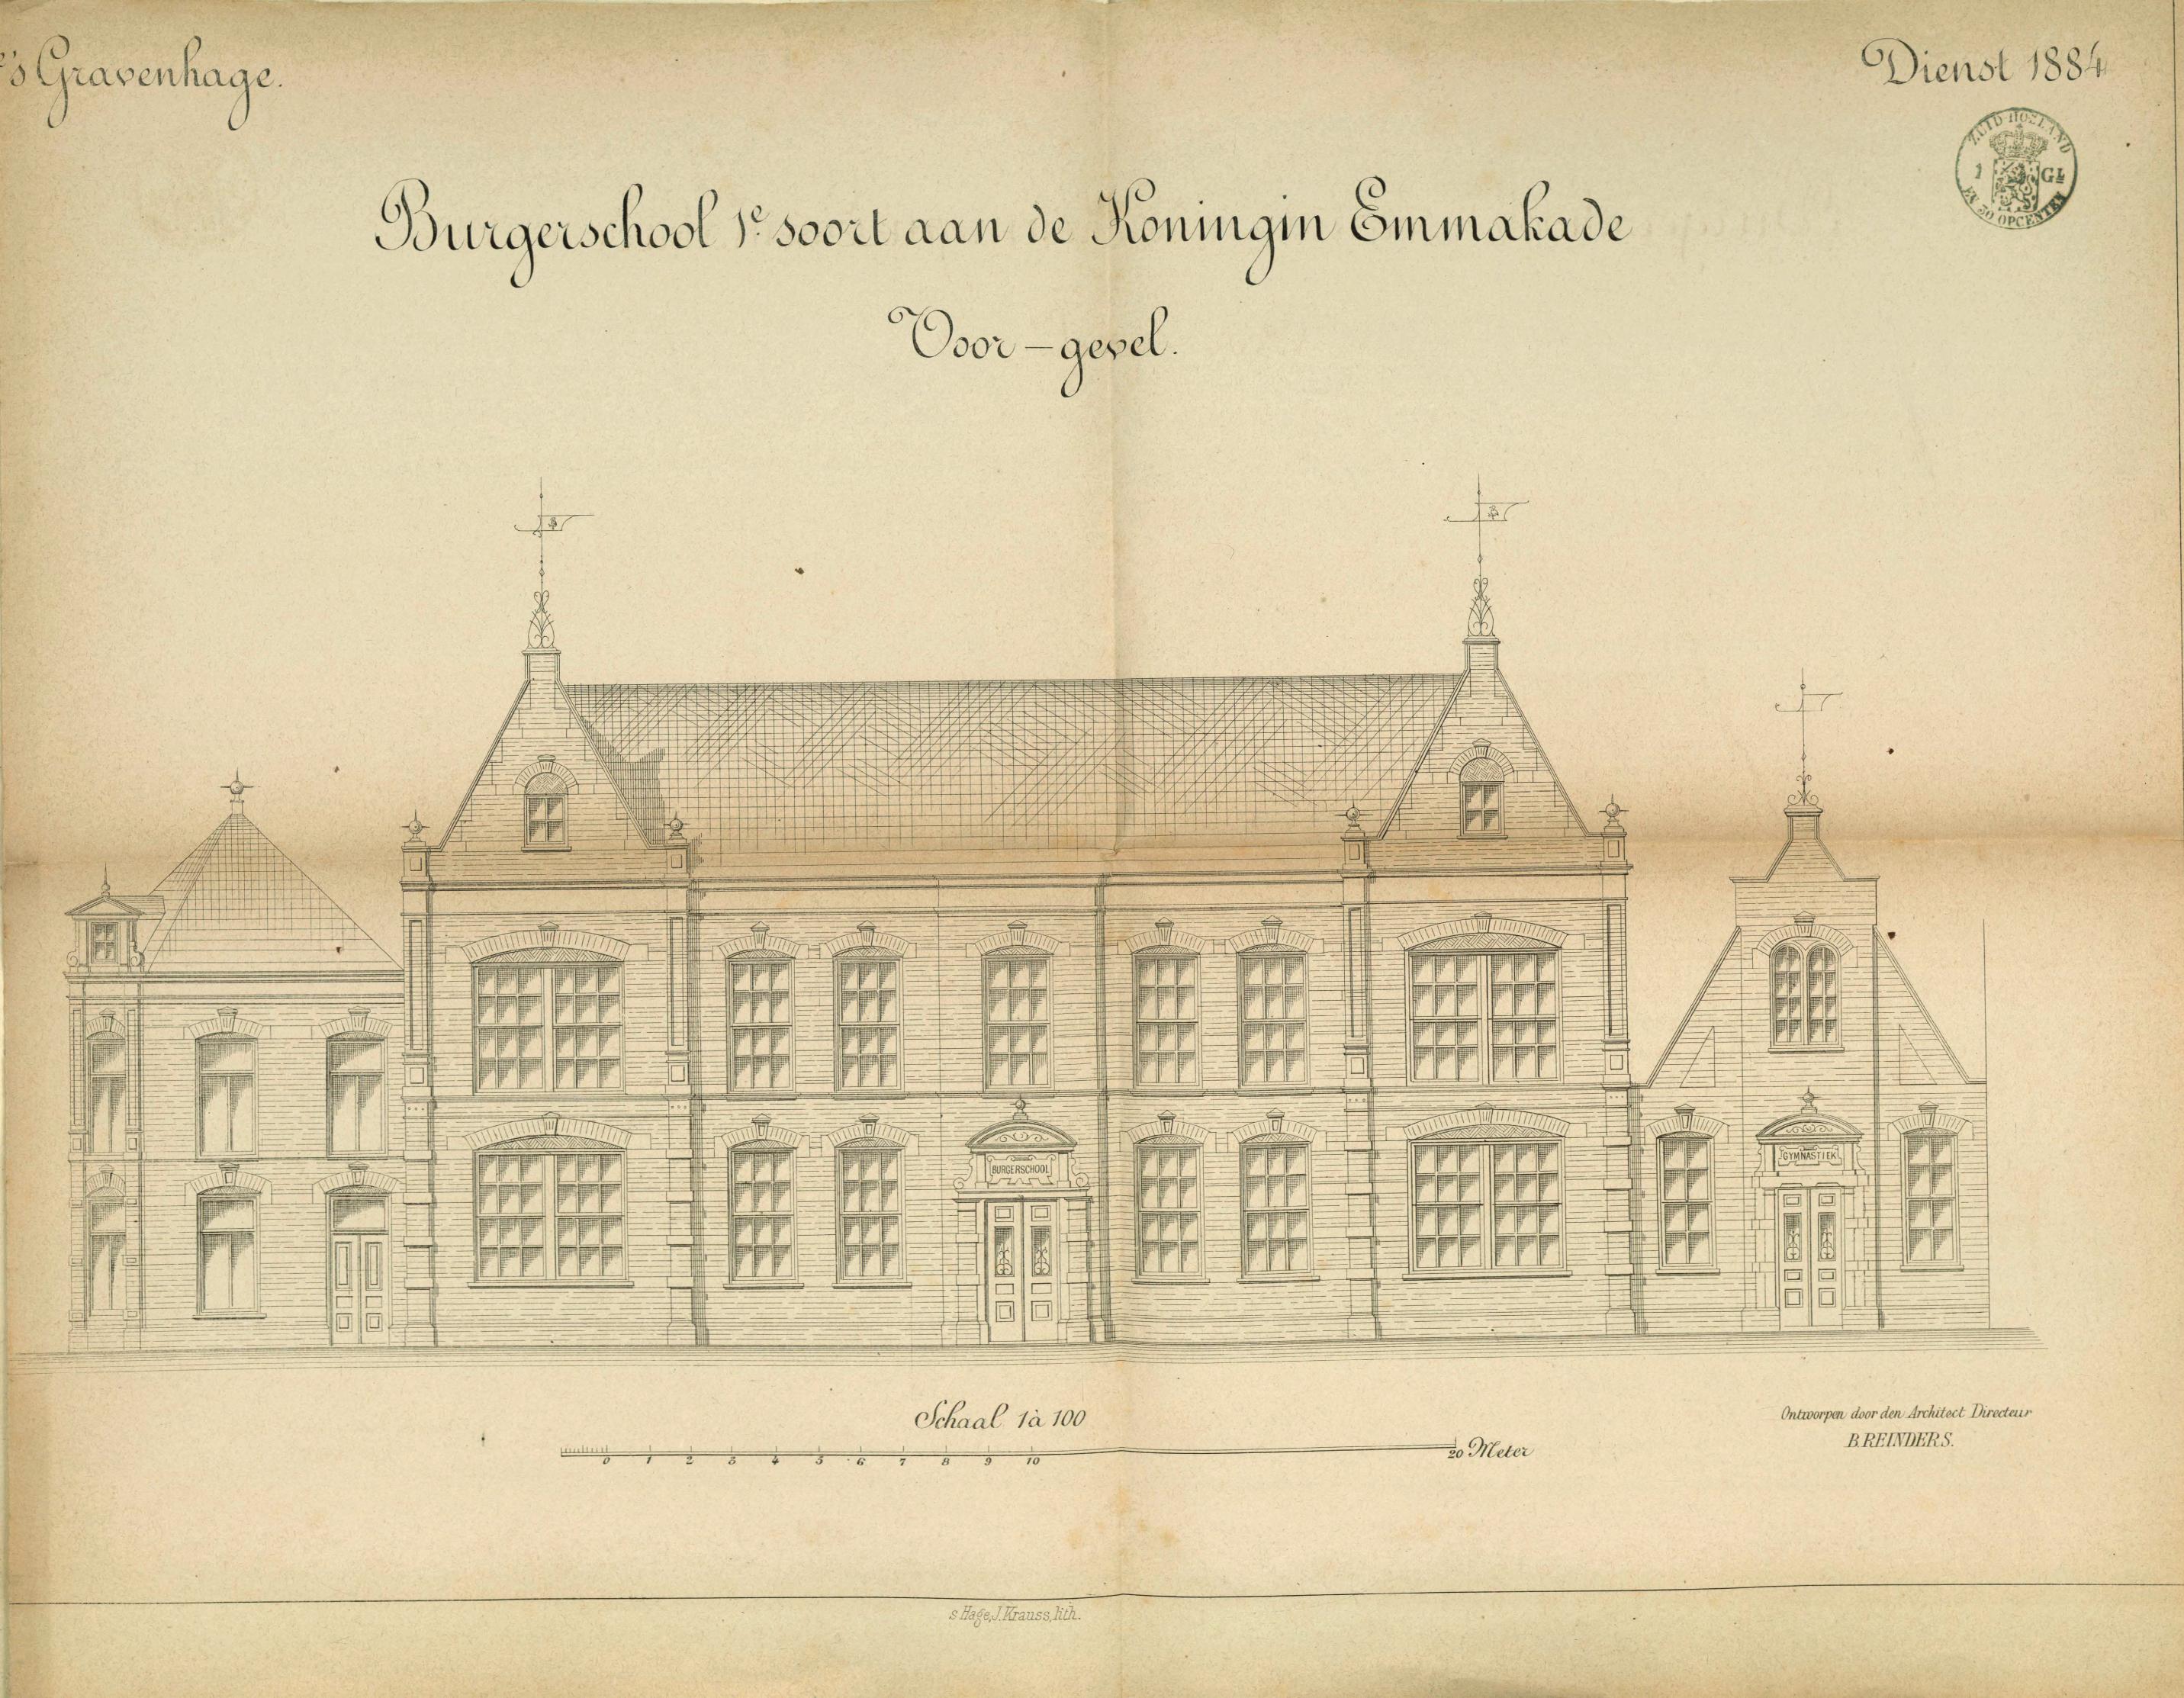 's Gravenhage.
Dienst 1884
ZUID-HOLLAND
1 GL
EN 50 OPCENTEN
Burgerschool 1e soort aan de Koningin Emmakade
Voor-gevel.
BURGERSCHOOL
GYMNASTIEK
Schaal 1 à 100
0 1 2 3 4 5 6 7 8 9 10 20 Meter
Ontworpen door den Architect Directeur
B. REINDERS.
s Hage, J. Krauss, lith.